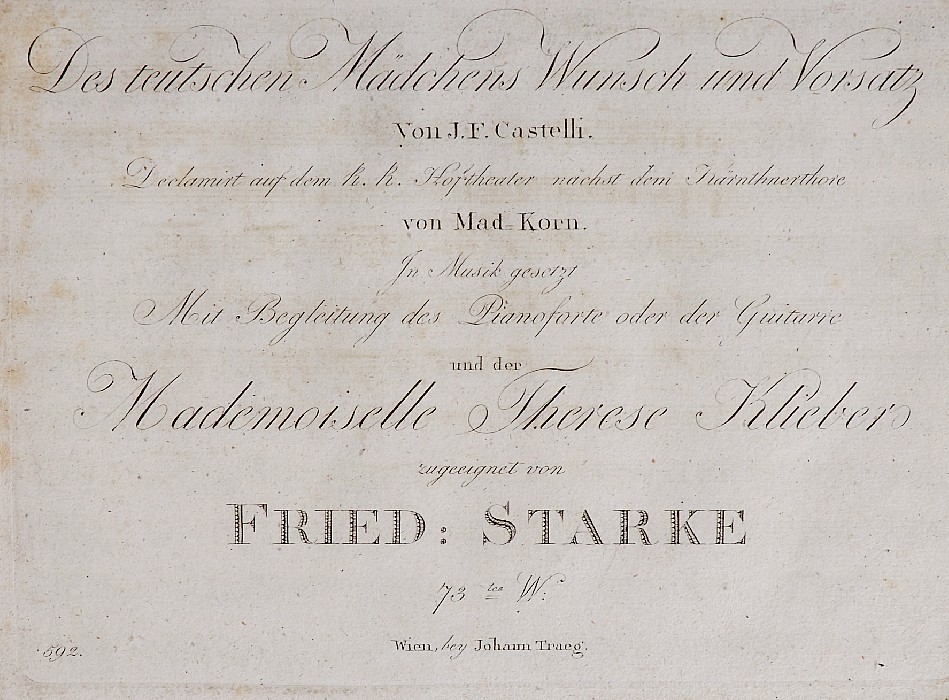 Des teutschen Mädchens Wunsch und Vorsatz
Von J.F. Castelli.
Declamirt auf dem k. k. Hoftheater nächst dem Kärnthnerthore
von Mad= Korn.
In Musik gesetzt
Mit Begleitung des Pianoforte oder der Guitarre
und der
Mademoiselle Therese Klieber
zugeeignet von
FRIED: STARKE
73 tes W:
592.
Wien, bey Johann Traeg.